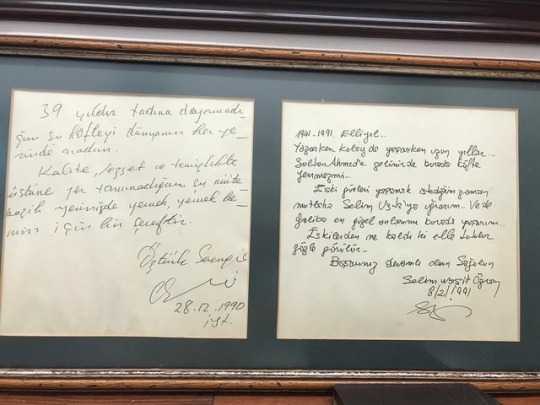 39 yıldır tadına doyamadı-
ğım şu köfteyi dünyanın her ye-
rinde aradım.
Kalite, lezzet ve temizlikte
üstüne yer tanımadığım şu
yerinizde yemek, yemek be-
nim için bin şereftir.
Öztürk Serengil
28.12.1990
ist.
1941-1991. Elli yıl...
Yazarken kolay da yaşarken uzun yıllar...
Sultan Ahmed'e gelinir de burada köfte
yenmez mi.
Eski günleri yaşamak istediğim zaman
mutlaka Selim Usta'ya uğrarım. Ve de
galiba en güzel anlarımı burada yaşarım.
Eskilerden ne kaldı ki elle tutulur
gözle görülür.
Başarınız devamlı olsun Sağolun
Selim
8/2/1991